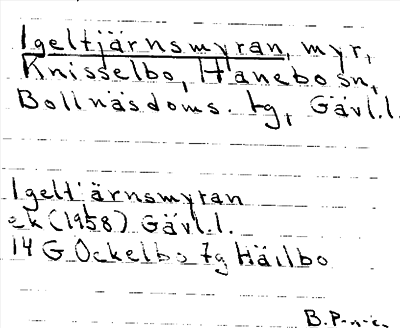 Igeltjärnsmyran, myr,
Knisselbo, Hanebo sn,
Bollnäs doms. tg, Gävl.l.
Igeltjärnsmyran
ek (1958) Gävl.l.
14 G Ockelbo